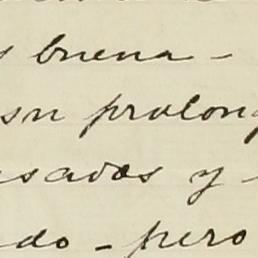 s buena -
su prolong
sados y
do - pero